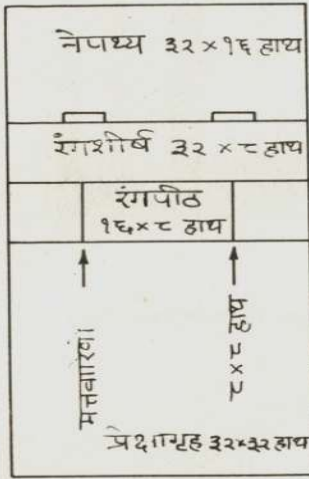 नेपथ्य ३२ × १६ हाथ
रंगशीर्ष ३२ × ८ हाथ
रंगपीठ
१६ × ८ हाथ
मत्तवारणी
८ × ८ हाथ
प्रेक्षागृह ३२ × ३२ हाथ